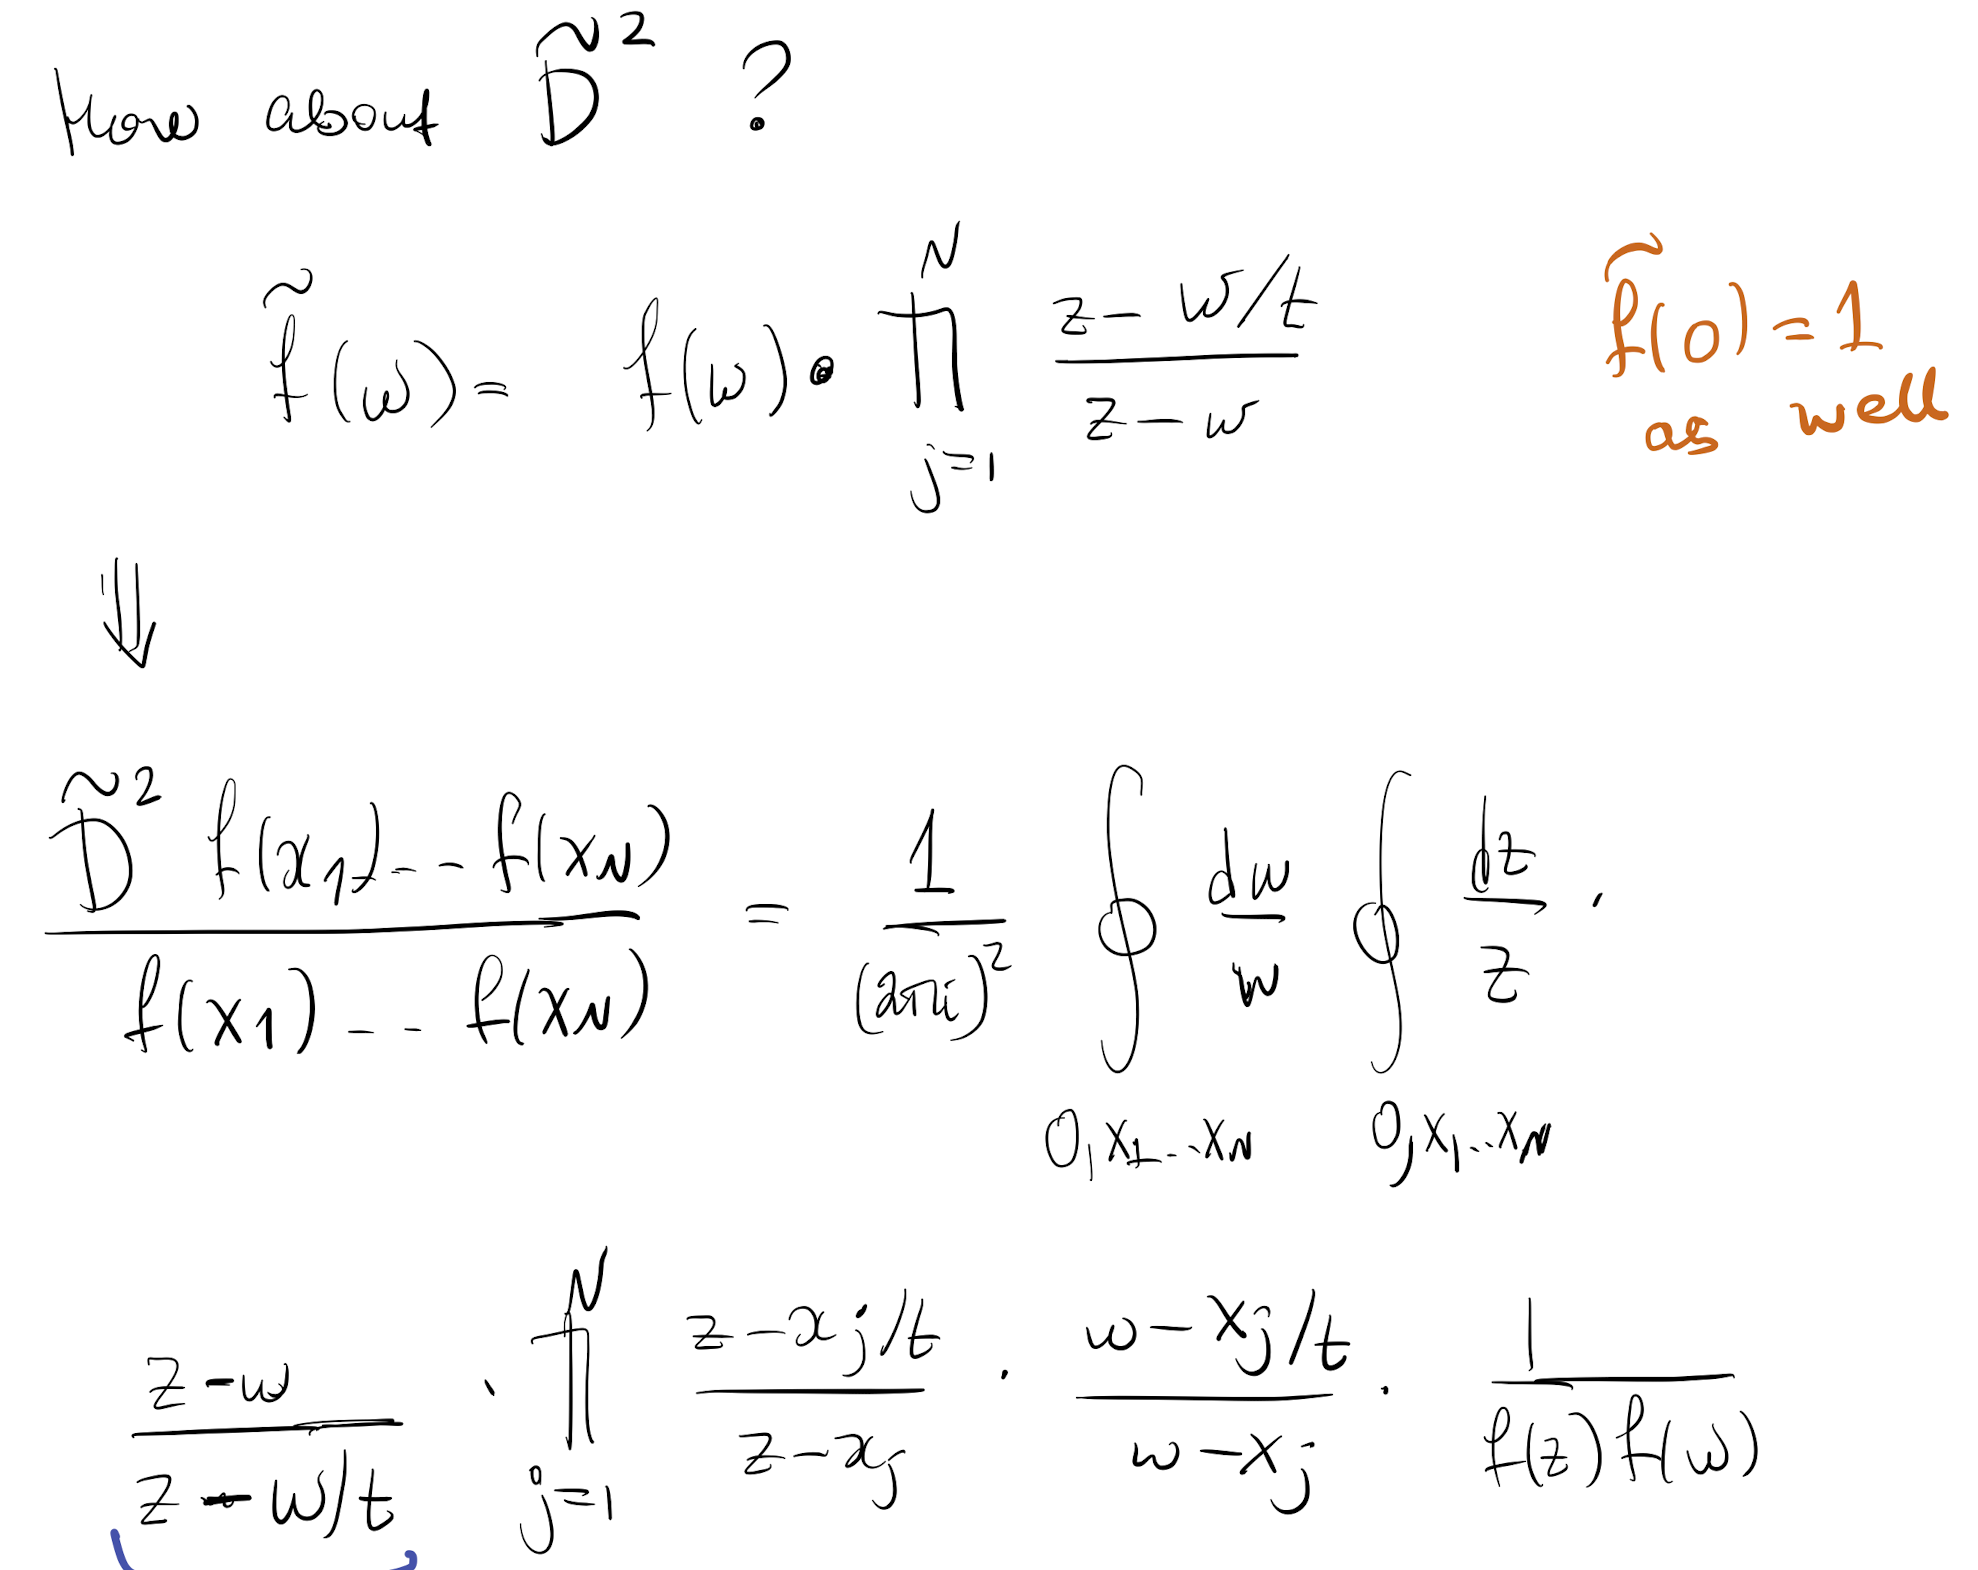 How about D̃² ?
f̃(w) = f(w) · ∏_{j=1}^{N} \frac{z - w/t}{z - w}
f̃(0) = 1
as well
⇓
\frac{D̃² f(x_1) -- f(x_N)}{f(x_1) -- f(x_N)} = \frac{1}{(2πi)^2} ∮_{0, x_1 … x_N} \frac{dw}{w} ∮_{0, x_1 … x_N} \frac{dz}{z} ·
\frac{z - w}{z - w/t} · ∏_{j=1}^{N} \frac{z - x_j/t}{z - x_j} · \frac{w - x_j/t}{w - x_j} · \frac{1}{f(z) f(w)}